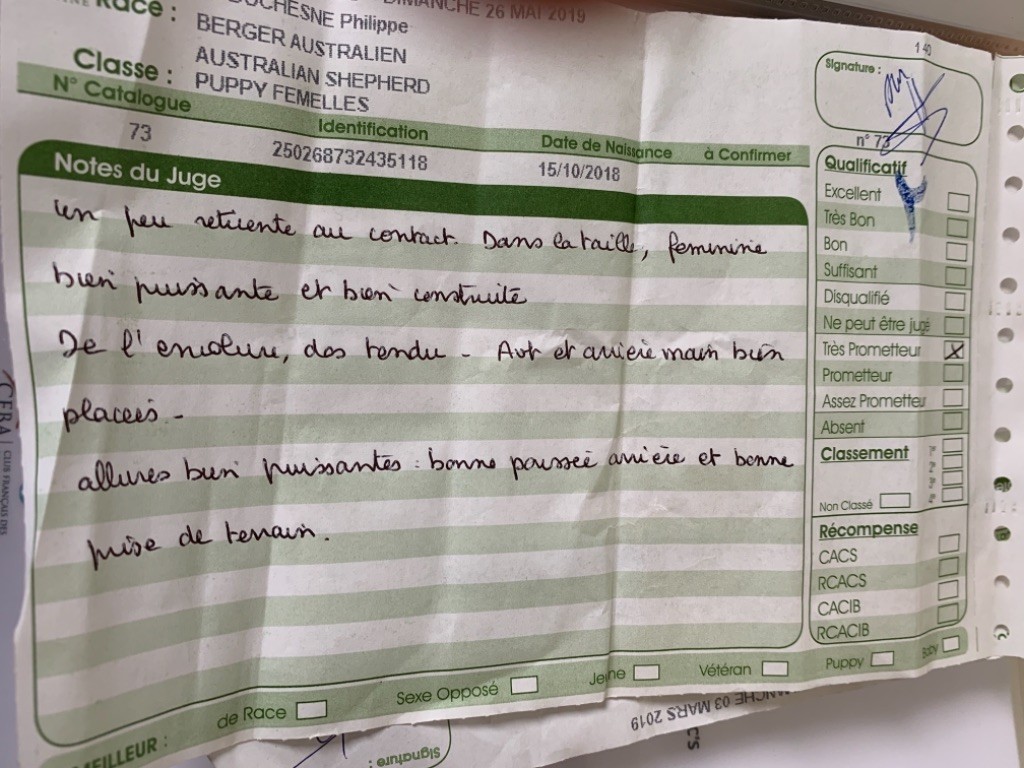 DIMANCHE 26 MAI 2019
Race : DUCHESNE Philippe
BERGER AUSTRALIEN
AUSTRALIAN SHEPHERD
Classe : PUPPY FEMELLES
N° Catalogue Identification Date de Naissance à Confirmer
73 250268732435118 15/10/2018
Notes du Juge
un peu réticente au contact. Dans la taille, feminine
bien puissante et bien construite
De l'encolure, dos tendu - Avt et arrière main bien
placées -
allures bien puissantes : bonne poussée arrière et bonne
prise de terrain.
140
Signature :
n° 73
Qualificatif
Excellent
Très Bon
Bon
Suffisant
Disqualifié
Ne peut être jugé
Très Prometteur X
Prometteur
Assez Prometteur
Absent
Classement
Non Classé
Récompense
CACS
RCACS
CACIB
RCACIB
MEILLEUR : de Race Sexe Opposé Jeune Vétéran Puppy Baby
DIMANCHE 03 MARS 2019
Signature :
CLUB FRANÇAIS DES